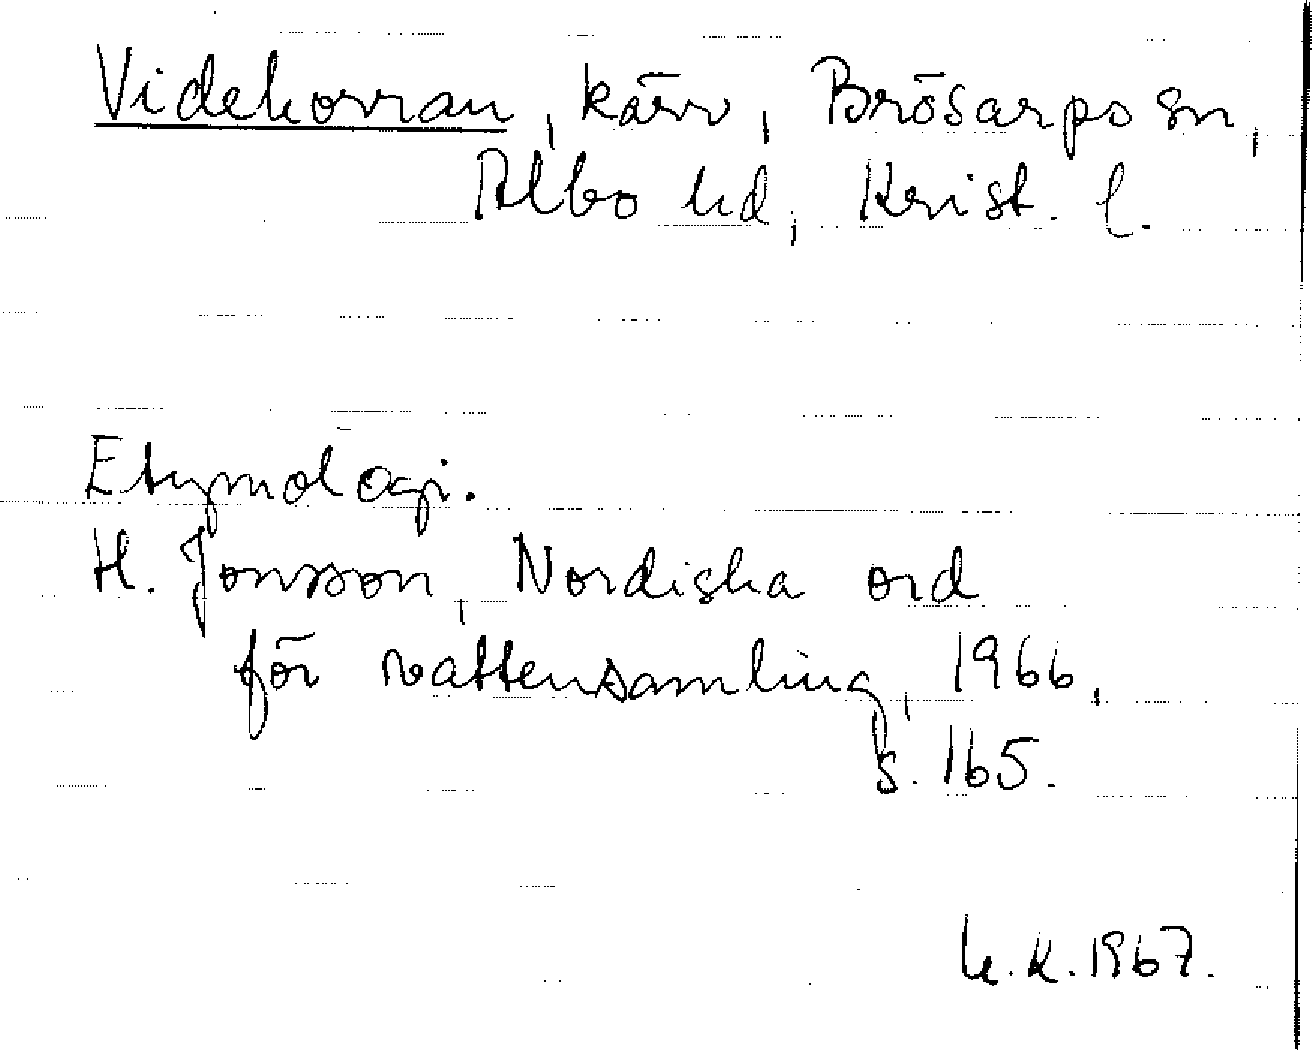 Videkorran, kärr, Brösarps sn,
Albo hd, Krist. l.
Etymologi.
H. Jonsson, Nordiska ord
för vattensamling, 1966,
s. 165.
K.K. 1967.